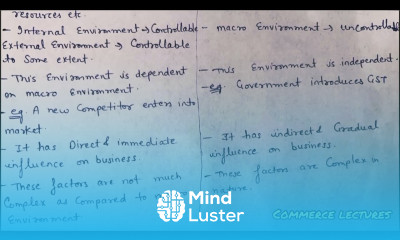 resources etc.
- Internal Environment → Controllable
External Environment → Controllable
to Some extent.
- This Environment is dependent
on macro Environment.
- eg A new Competitor enters into
market.
- It has Direct & immediate
influence on business
- These factors are not much
Complex as Compared to
Environment
- macro Environment → uncontrollable
- This Environment is independent.
- eg. Government introduces GST
- It has indirect & Gradual
influence on business.
- These factors are Complex in
nature.
Mind
Luster
COMMERCE LECTURES